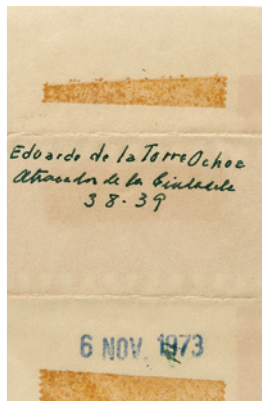 Eduardo de la Torre Ochoa
Atracador de la Ciudadela
38-39
6 NOV. 1973